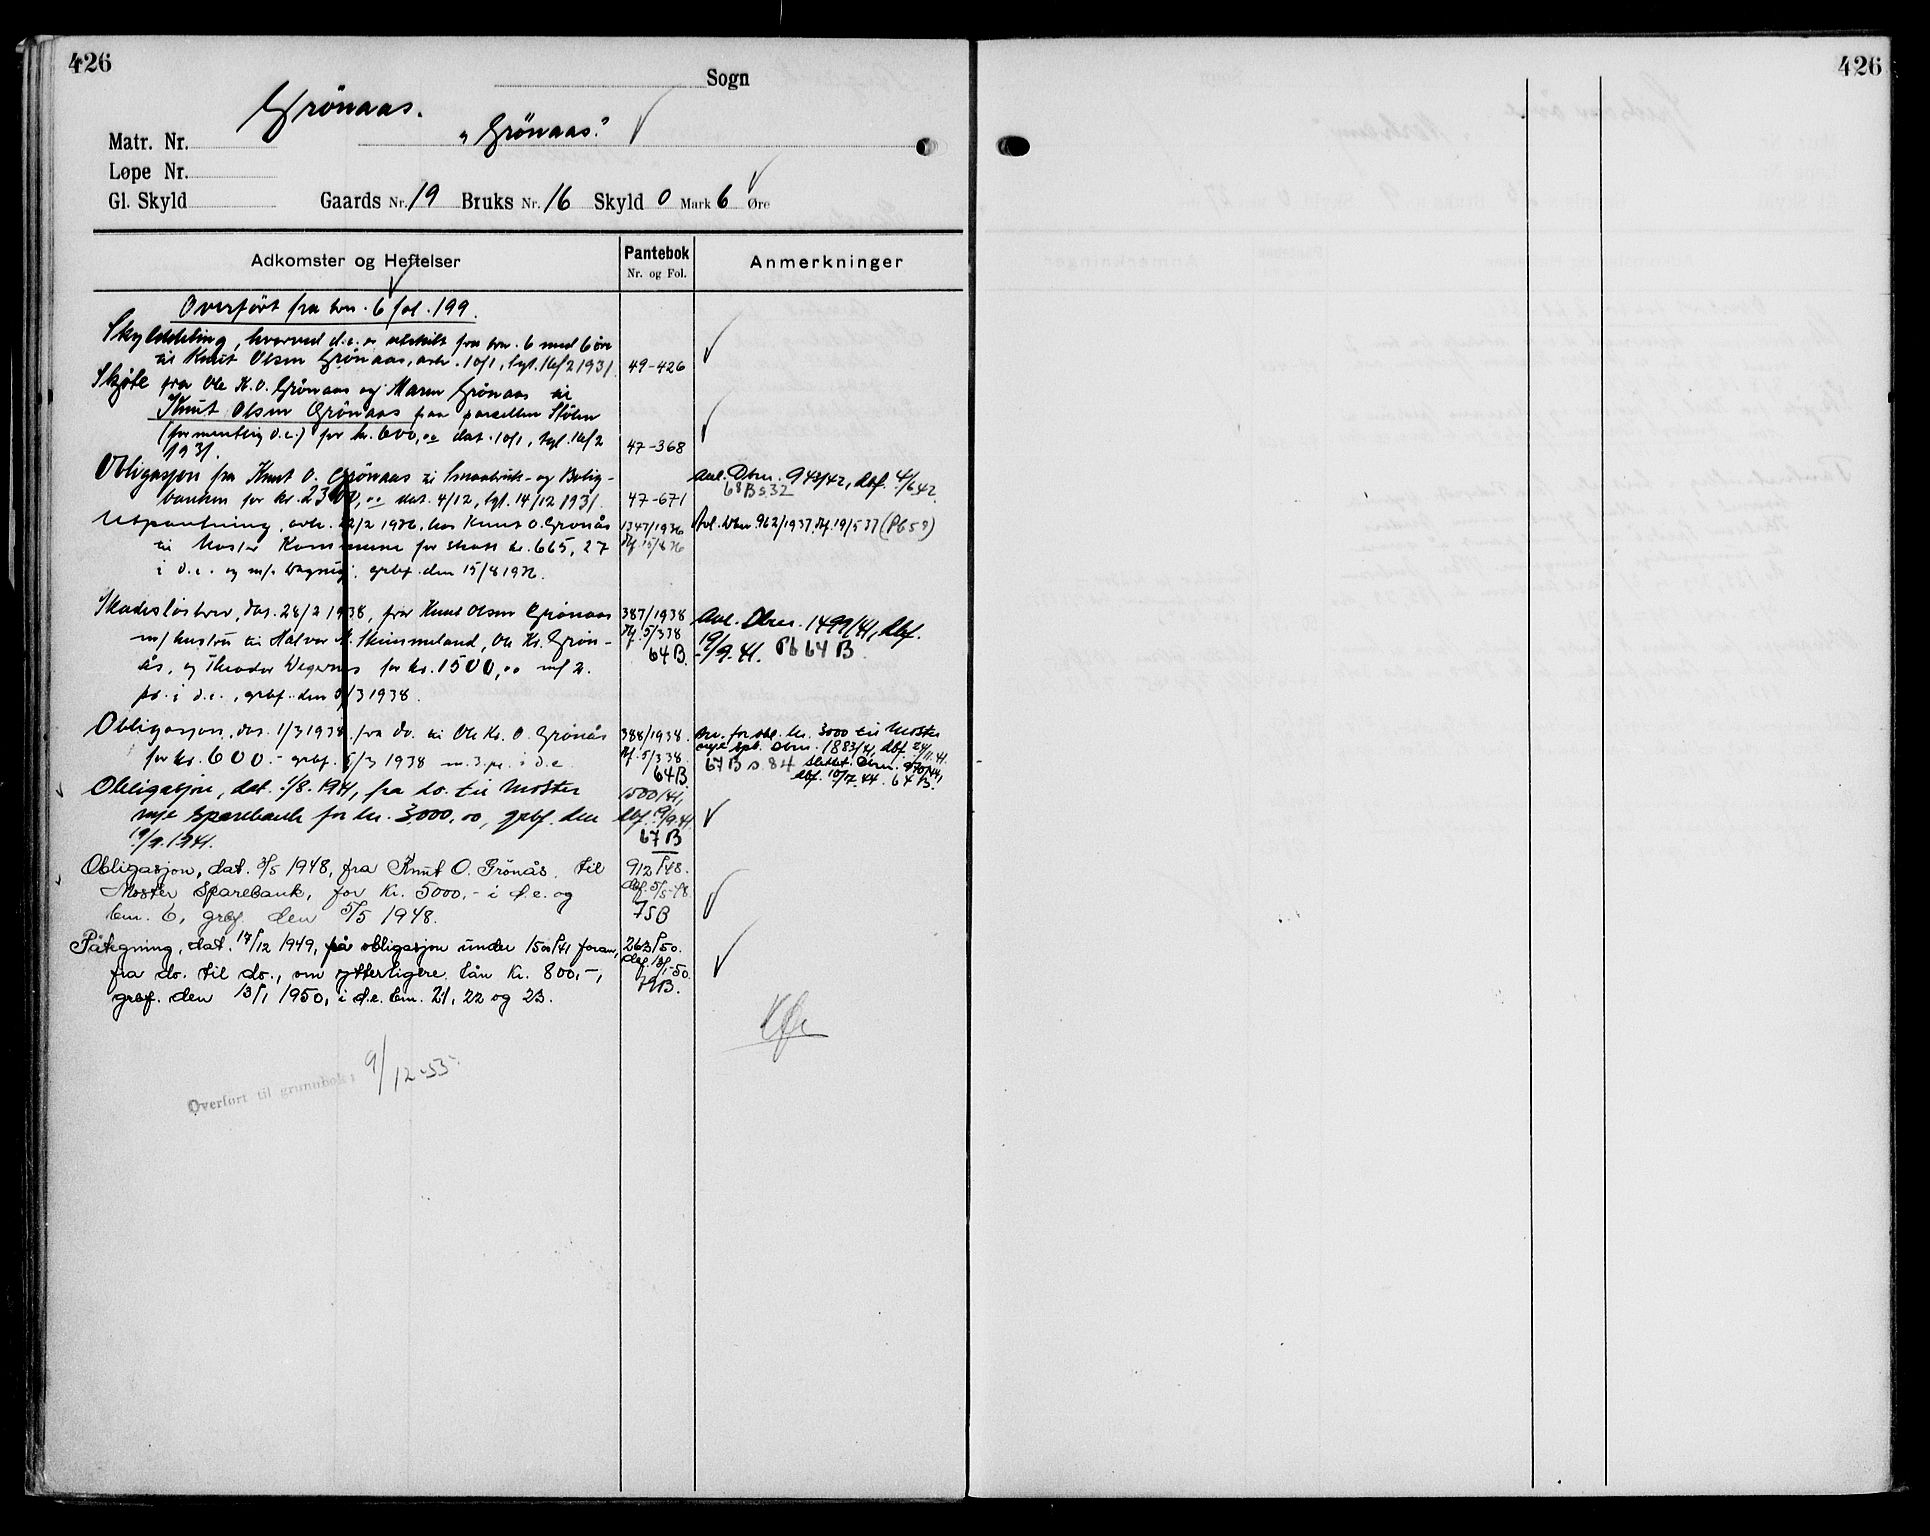 426
426
Sogn
Grönaas.
Matr. Nr.
"Grönaas."
Løpe Nr.
Gl. Skyld Gaards Nr. 19 Bruks Nr. 16 Skyld 0 Mark 6 Øre
Adkomster og Heftelser Pantebok Nr. og Fol. Anmerkninger
Overført fra bnr. 6 fol. 199.
Skylddeling, hvorved d.e. er utskilt fra bnr. 6 med 6 öre
til Knut Olsen Grönaas, avh. 10/1, tgl. 16/2 1931. 49-426
Skjöte fra Ole K.O. Grönaas og Maren Grönaas til
Knut Olsen Grönaas paa parsellen Stölen
(formentlig d.e.) for kr. 600,00 dat. 10/1, tgl. 16/2
1931. 47-368
Obligasjon fra Knut O. Grönaas til Smaabruk- og Bolig-
banken for kr. 2300,00 dat. 4/12, tgl. 14/12 1931. 47-671
Avl. Dbnr. 943/42, dbf. 4/6.42.
68B s. 32
Utpantning, avh. 22/2 1936, hos Knut O. Grønås 1347/1936
Avl. Dbnr. 962/1937. Df. 19/5 37 (Pb 59)
til Moster Kommune for skatt kr. 665,27 Df. 15/8 36
i d.e. og m/. grbf. den 15/8 1936.
Skadesløsbrev, dat. 28/2 1938, fra Knut Olsen Grönaas 387/1938
Avl. Dbnr. 1499/41, dbf.
m/hustru til Halvor M. Skimmeland, Ole Kr. Grön- Df. 5/3 38
19/9.41. Pb 64 B
ås, og Theodor Wegernes for kr. 1500,00 m/ 2. 64B
pr. i d.e., grbf. den 5/3 1938.
Obligasjon, dat. 1/3 1938, fra do. til Ole Kr. O. Grönås 388/1938.
for obl. kr. 3000 til Moster
for kr. 600.- grbf. 5/3 1938 m. 3. pr. i d.e. Df. 5/3 38.
64B
spb. Dbnr. 1883/41, dbf. 24/11.41.
67B s. 84 Slettet. Dbnr. 970/44,
dbf. 10/7.44. 64 B.
Obligasjon, dat. 1/8.1941, fra do. til Moster 1500/41,
nye sparebank for kr. 3000,00, grbf. den dbf. 19/9.41.
19/9.1941. 67B
Obligasjon, dat. 3/5 1948, fra Knut O. Grönås, til 912/48.
Moster Sparebank, for kr. 5000,- i d.e. og dbf. 5/5-48
bnr. 6, grbf. den 5/5 1948. 75B
Påtegning, dat. 17/12 1949, på obligasjon under 1500/41 foran, 263/50.
fra do. til do., om ytterligere lån kr. 800,-, dbf. 13/1-50.
grbf. den 13/1 1950, i d.e. bnr. 21, 22 og 23. 79B.
Overført til grunnbok: 9/12-55.